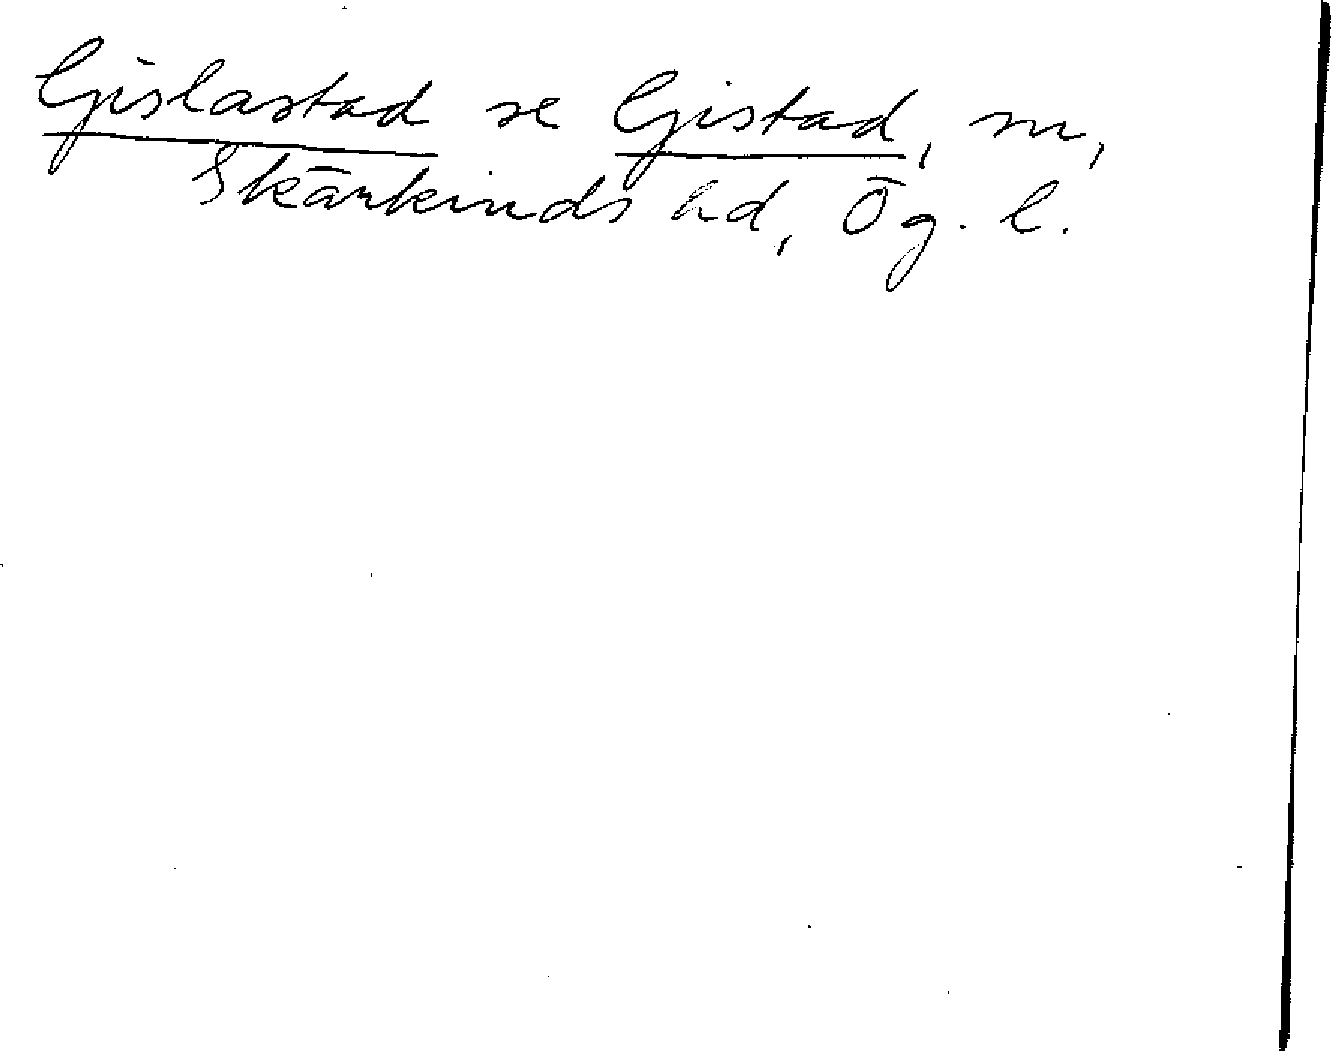 Gislastad se Gistad, sn,
Skärkinds hd, Ög. l.